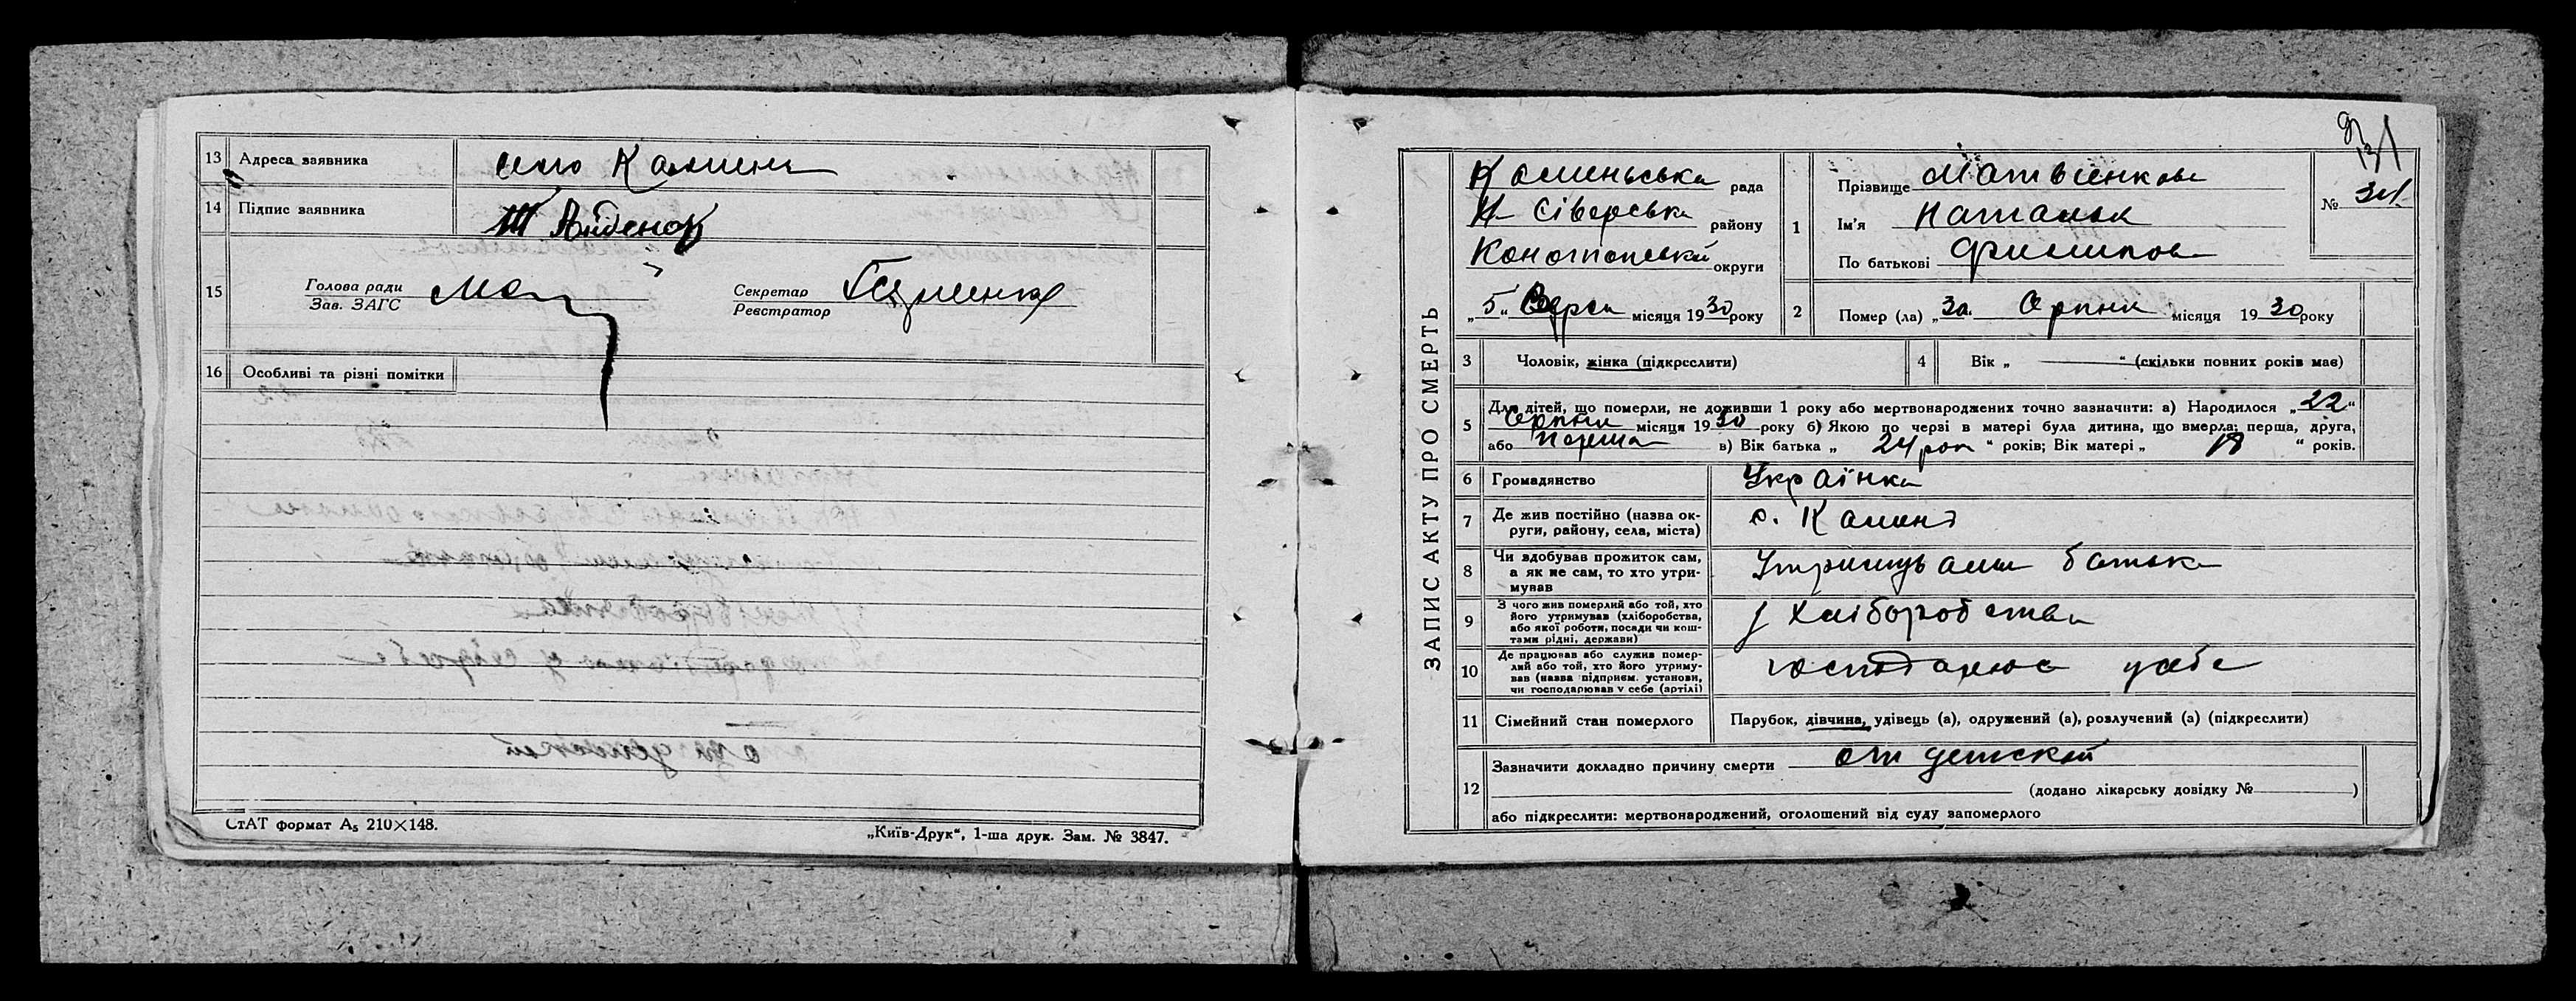 13 Адреса заявника село Камень
14 Підпис заявника
15 Голова ради
Зав. ЗАГС
Секретар
Реєстратор
16 Особливі та різні помітки
СтАТ формат А₅ 210×148.
„Київ-Друк“, 1-ша друк. Зам. № 3847.
ЗАПИС АКТУ ПРО СМЕРТЬ
Каменьська рада
Н-Сіверська району
Конотопський округи
„5“ Верес місяця 1930 року
1 Прізвище Матвіенкова
Ім'я Наталья
По батькові Филипова
№ 34
2 Помер (ла) „30 Серпня місяця 1930 року
3 Чоловік, жінка (підкреслити)
4 Вік „ “ (скільки повних років мав)
5 Для дітей, що померли, не доживши 1 року або мертвонароджених точно зазначити: а) Народилося „22“
Серпня місяця 1930 року б) Якою по черзі в матері була дитина, що вмерла: перша, друга,
або перша в) Вік батька „ 24 рок “ років; Вік матері „ 19 “ років.
6 Громадянство Українка
7 Де жив постійно (назва ок-
руги, району, села, міста) с. Камень
8 Чи здобував прожиток сам,
а як не сам, то хто утри-
мував Утримував батька
9 З чого жив померлий або той, хто
його утримував (хліборобства,
або якої роботи, посади чи кош-
тами рідні, держави) з хліборобства
10 Де працював або служив помер-
лий або той, хто його утриму-
вав (назва підприєм. установи,
чи господарював у себе (артілі) господарює у себе
11 Сімейний стан померлого Парубок, дівчина, удівець (а), одружений (а), розлучений (а) (підкреслити)
12 Зазначити докладно причину смерти от детской
(додано лікарську довідку № )
або підкреслити: мертвонароджений, оголошений від суду запомерлого